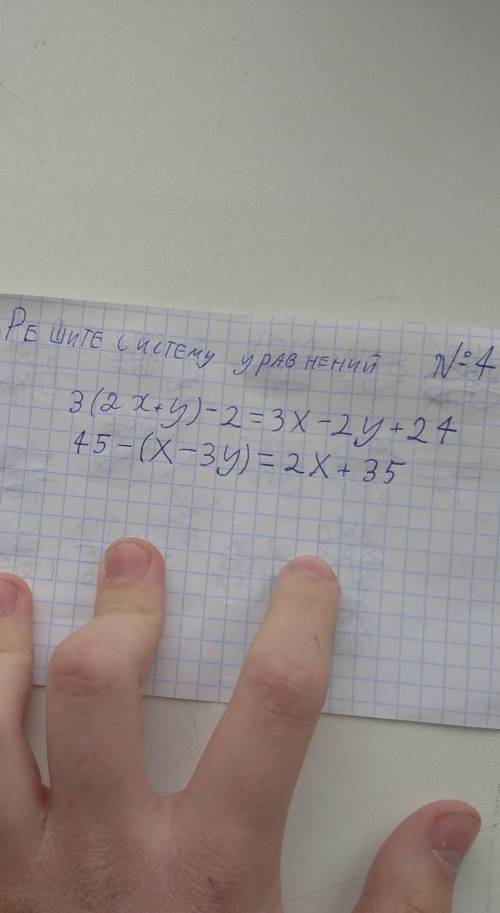 РЕШИТЕ СИСТЕМУ УРАВНЕНИЙ №4
3(2x+y)-2=3x-2y+24
45-(x-3y)=2x+35